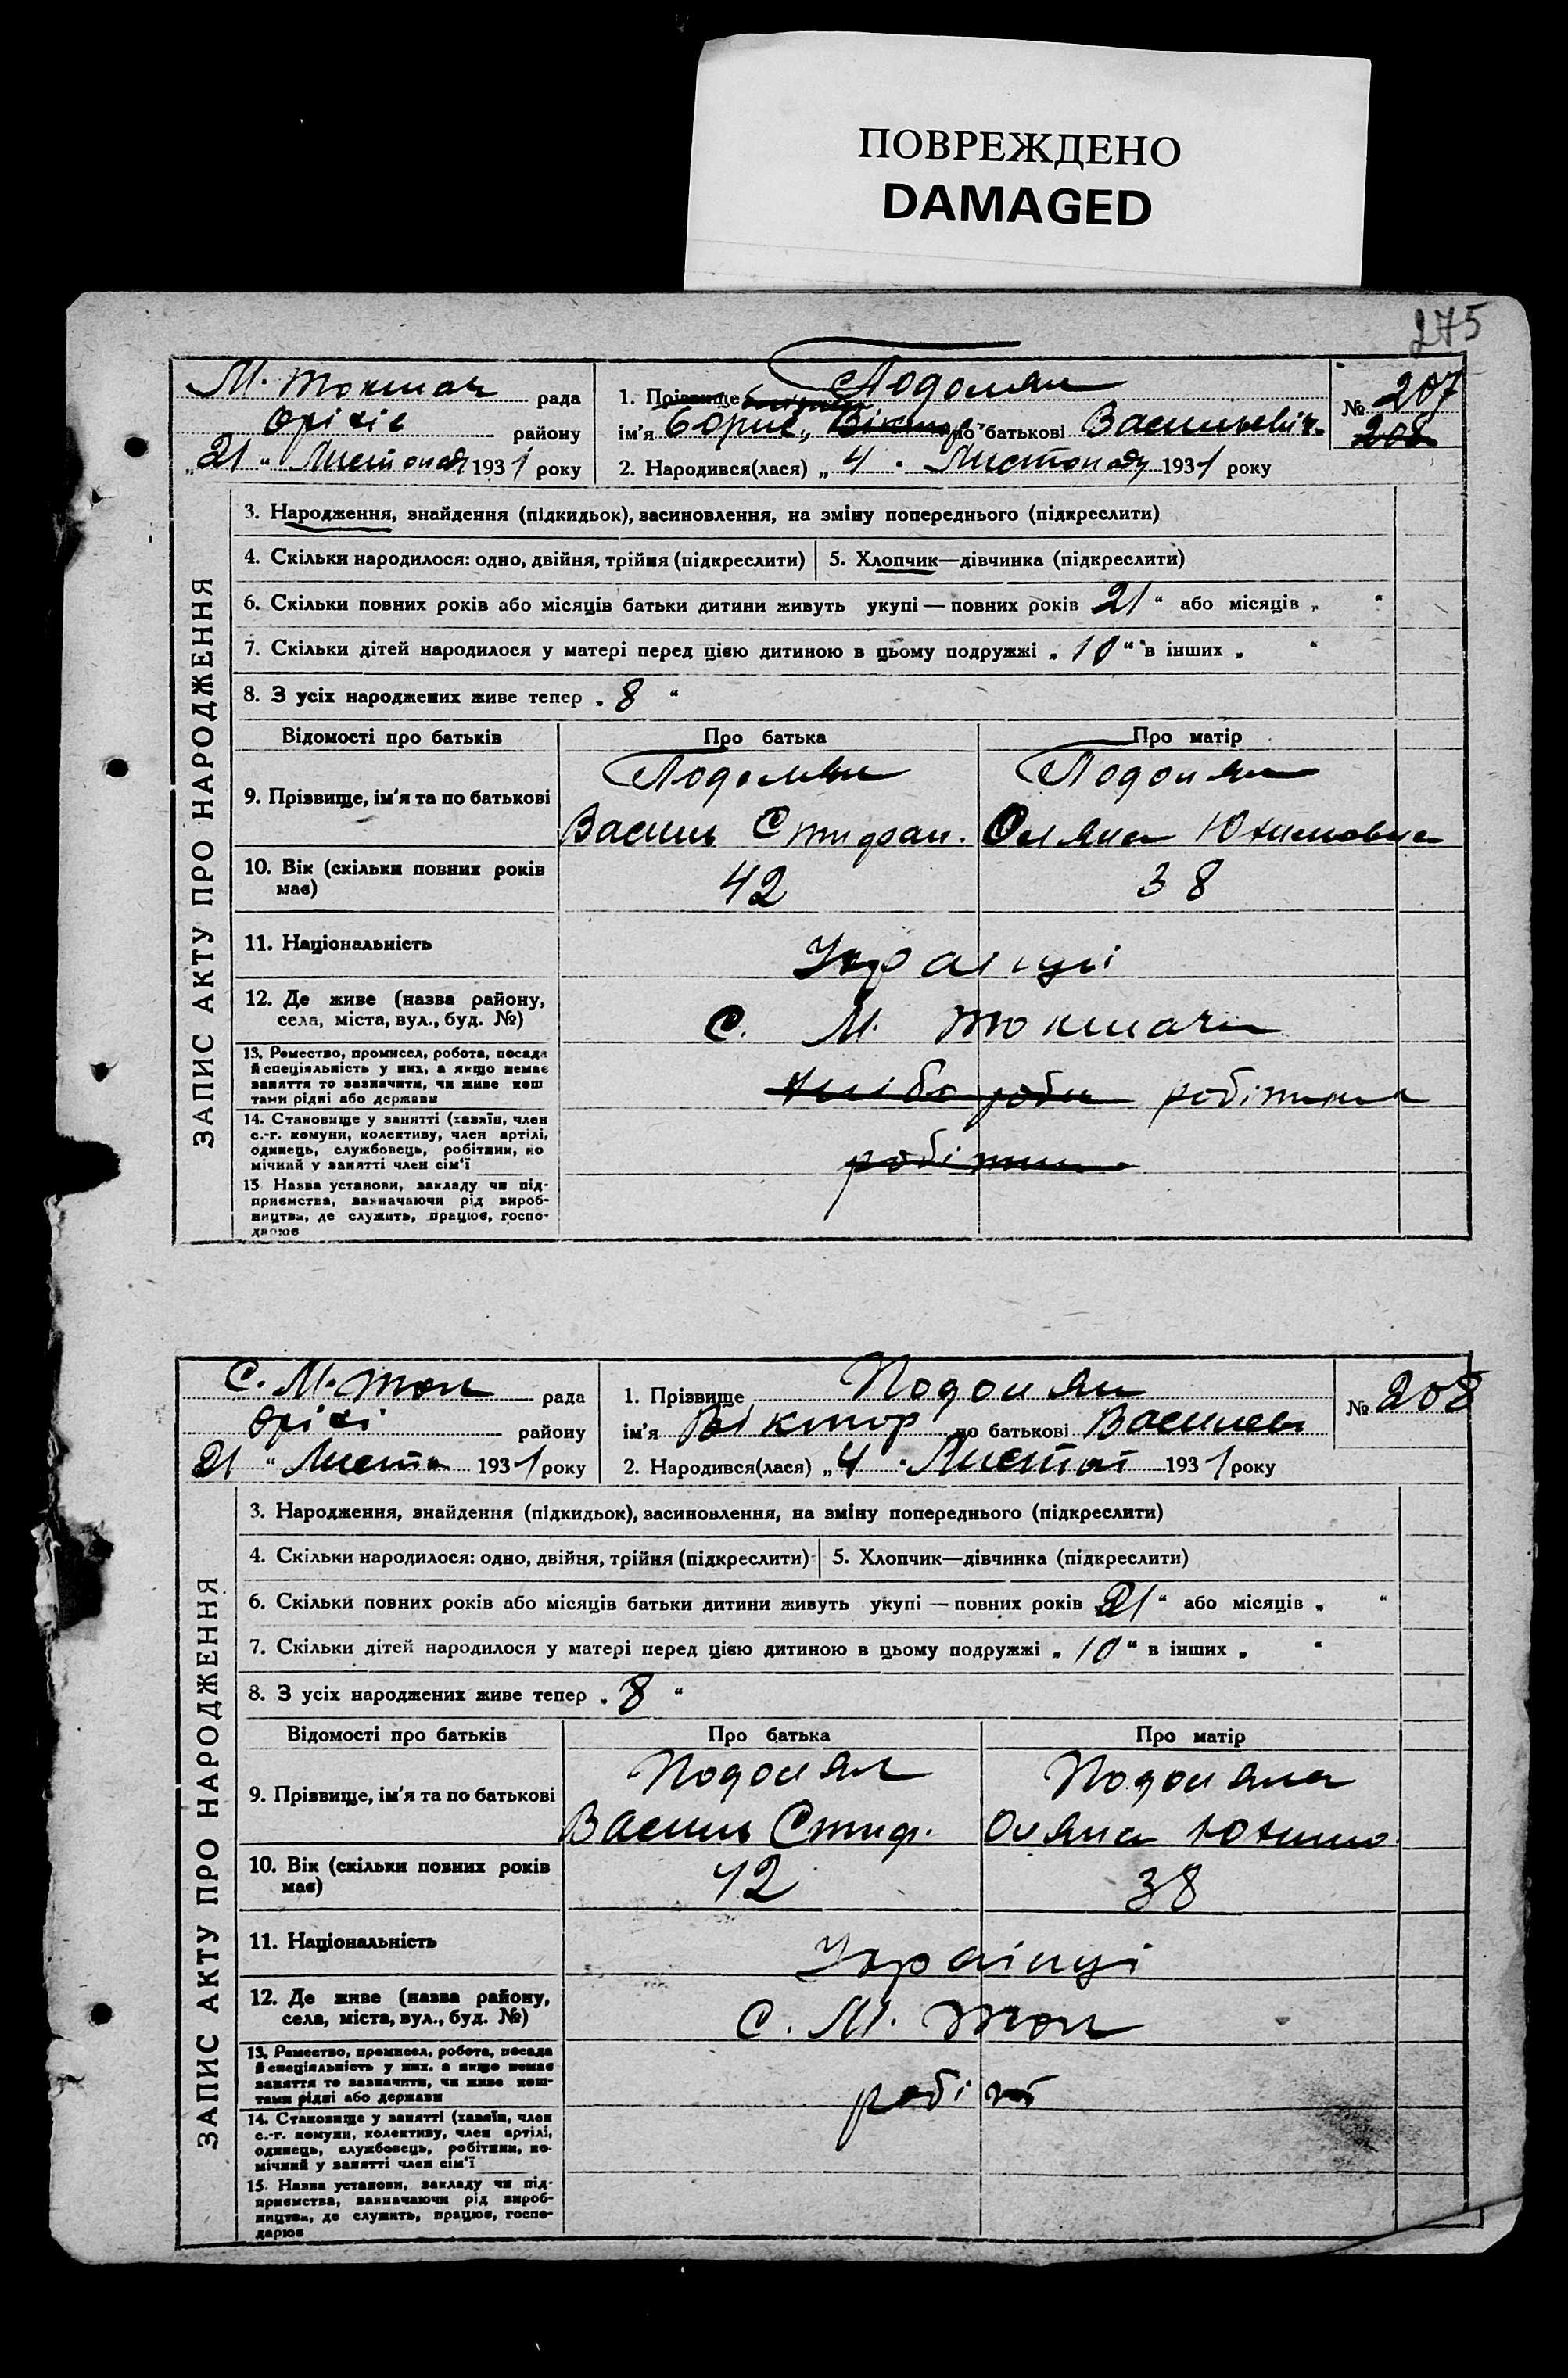 ПОВРЕЖДЕНО
DAMAGED
275
М. Токмач рада
Оріхів району
„21“ Листопада 1931 року
1. Прізвище Подолян
ім'я Борис, Віктор по батькові Васильевіч
2. Народився(лася) „4“ Листопаду 1931 року
№ 207
208
ЗАПИС АКТУ ПРО НАРОДЖЕННЯ
3. Народження, знайдення (підкидьок), засиновлення, на зміну попереднього (підкреслити)
4. Скільки народилося: одно, двійня, трійня (підкреслити) 5. Хлопчик—дівчинка (підкреслити)
6. Скільки повних років або місяців батьки дитини живуть укупі — повних років 21“ або місяців „ “
7. Скільки дітей народилося у матері перед цією дитиною в цьому подружжі „10“ в інших „ “
8. З усіх народжених живе тепер „8“
Відомості про батьків Про батька Про матір
9. Прізвище, ім'я та по батькові
Подолян Подолян
Василь Стифан. Оляна Юхимовна
10. Вік (скільки повних років має)
42 38
11. Національність
Українці
12. Де живе (назва району, села, міста, вул., буд. №)
С. М. Токмачк
13. Ремество, промисел, робота, посада
й спеціяльність у них, а якщо немає
заняття то зазначити, чи живе кош
тами рідні або держави
хлібороби робітник
14. Становище у занятті (хазяїн, член
с.-г. комуни, колективу, член артілі,
одинець, службовець, робітник, по
мічний у занятті член сім'ї
робітник
15. Назва установи, закладу чи під-
приємства, зазначаючи рід вироб-
ництва, де служить, працює, госпо-
дарює
С. М. Ток рада
Оріхі району
21 “ Листо 1931 року
1. Прізвище Подолян
ім'я Віктор по батькові Василев
2. Народився(лася) „4“ Листоп 1931 року
№ 208
ЗАПИС АКТУ ПРО НАРОДЖЕННЯ
3. Народження, знайдення (підкидьок), засиновлення, на зміну попереднього (підкреслити)
4. Скільки народилося: одно, двійня, трійня (підкреслити) 5. Хлопчик—дівчинка (підкреслити)
6. Скільки повних років або місяців батьки дитини живуть укупі — повних років „21“ або місяців „ “
7. Скільки дітей народилося у матері перед цією дитиною в цьому подружжі „10“ в інших „ “
8. З усіх народжених живе тепер „8“
Відомості про батьків Про батька Про матір
9. Прізвище, ім'я та по батькові
Подолян Подоляна
Василь Стиф. Оляна Юхимо
10. Вік (скільки повних років має)
42 38
11. Національність
Українці
12. Де живе (назва району, села, міста, вул., буд. №)
С. М. Ток
13. Ремество, промисел, робота, посада
й спеціяльність у них, а якщо немає
заняття то зазначити, чи живе кош-
тами рідні або держави
робіт
14. Становище у занятті (хазяїн, член
с.-г. комуни, колективу, член артілі,
одинець, службовець, робітник, по-
мічний у занятті член сім'ї
15. Назва установи, закладу чи під-
приємства, зазначаючи рід вироб-
ництва, де служить, працює, госпо-
дарює